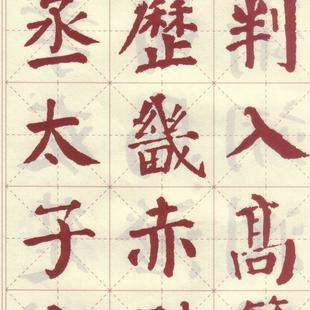 判入高
歷畿赤
丞太子